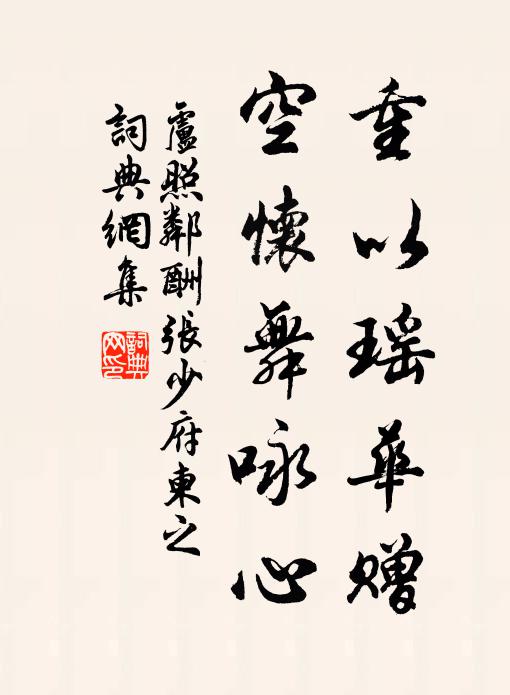 重以瑶華贈
空懷舞咏心
盧照鄰酬張少府東之
詞典網集
詞典网印